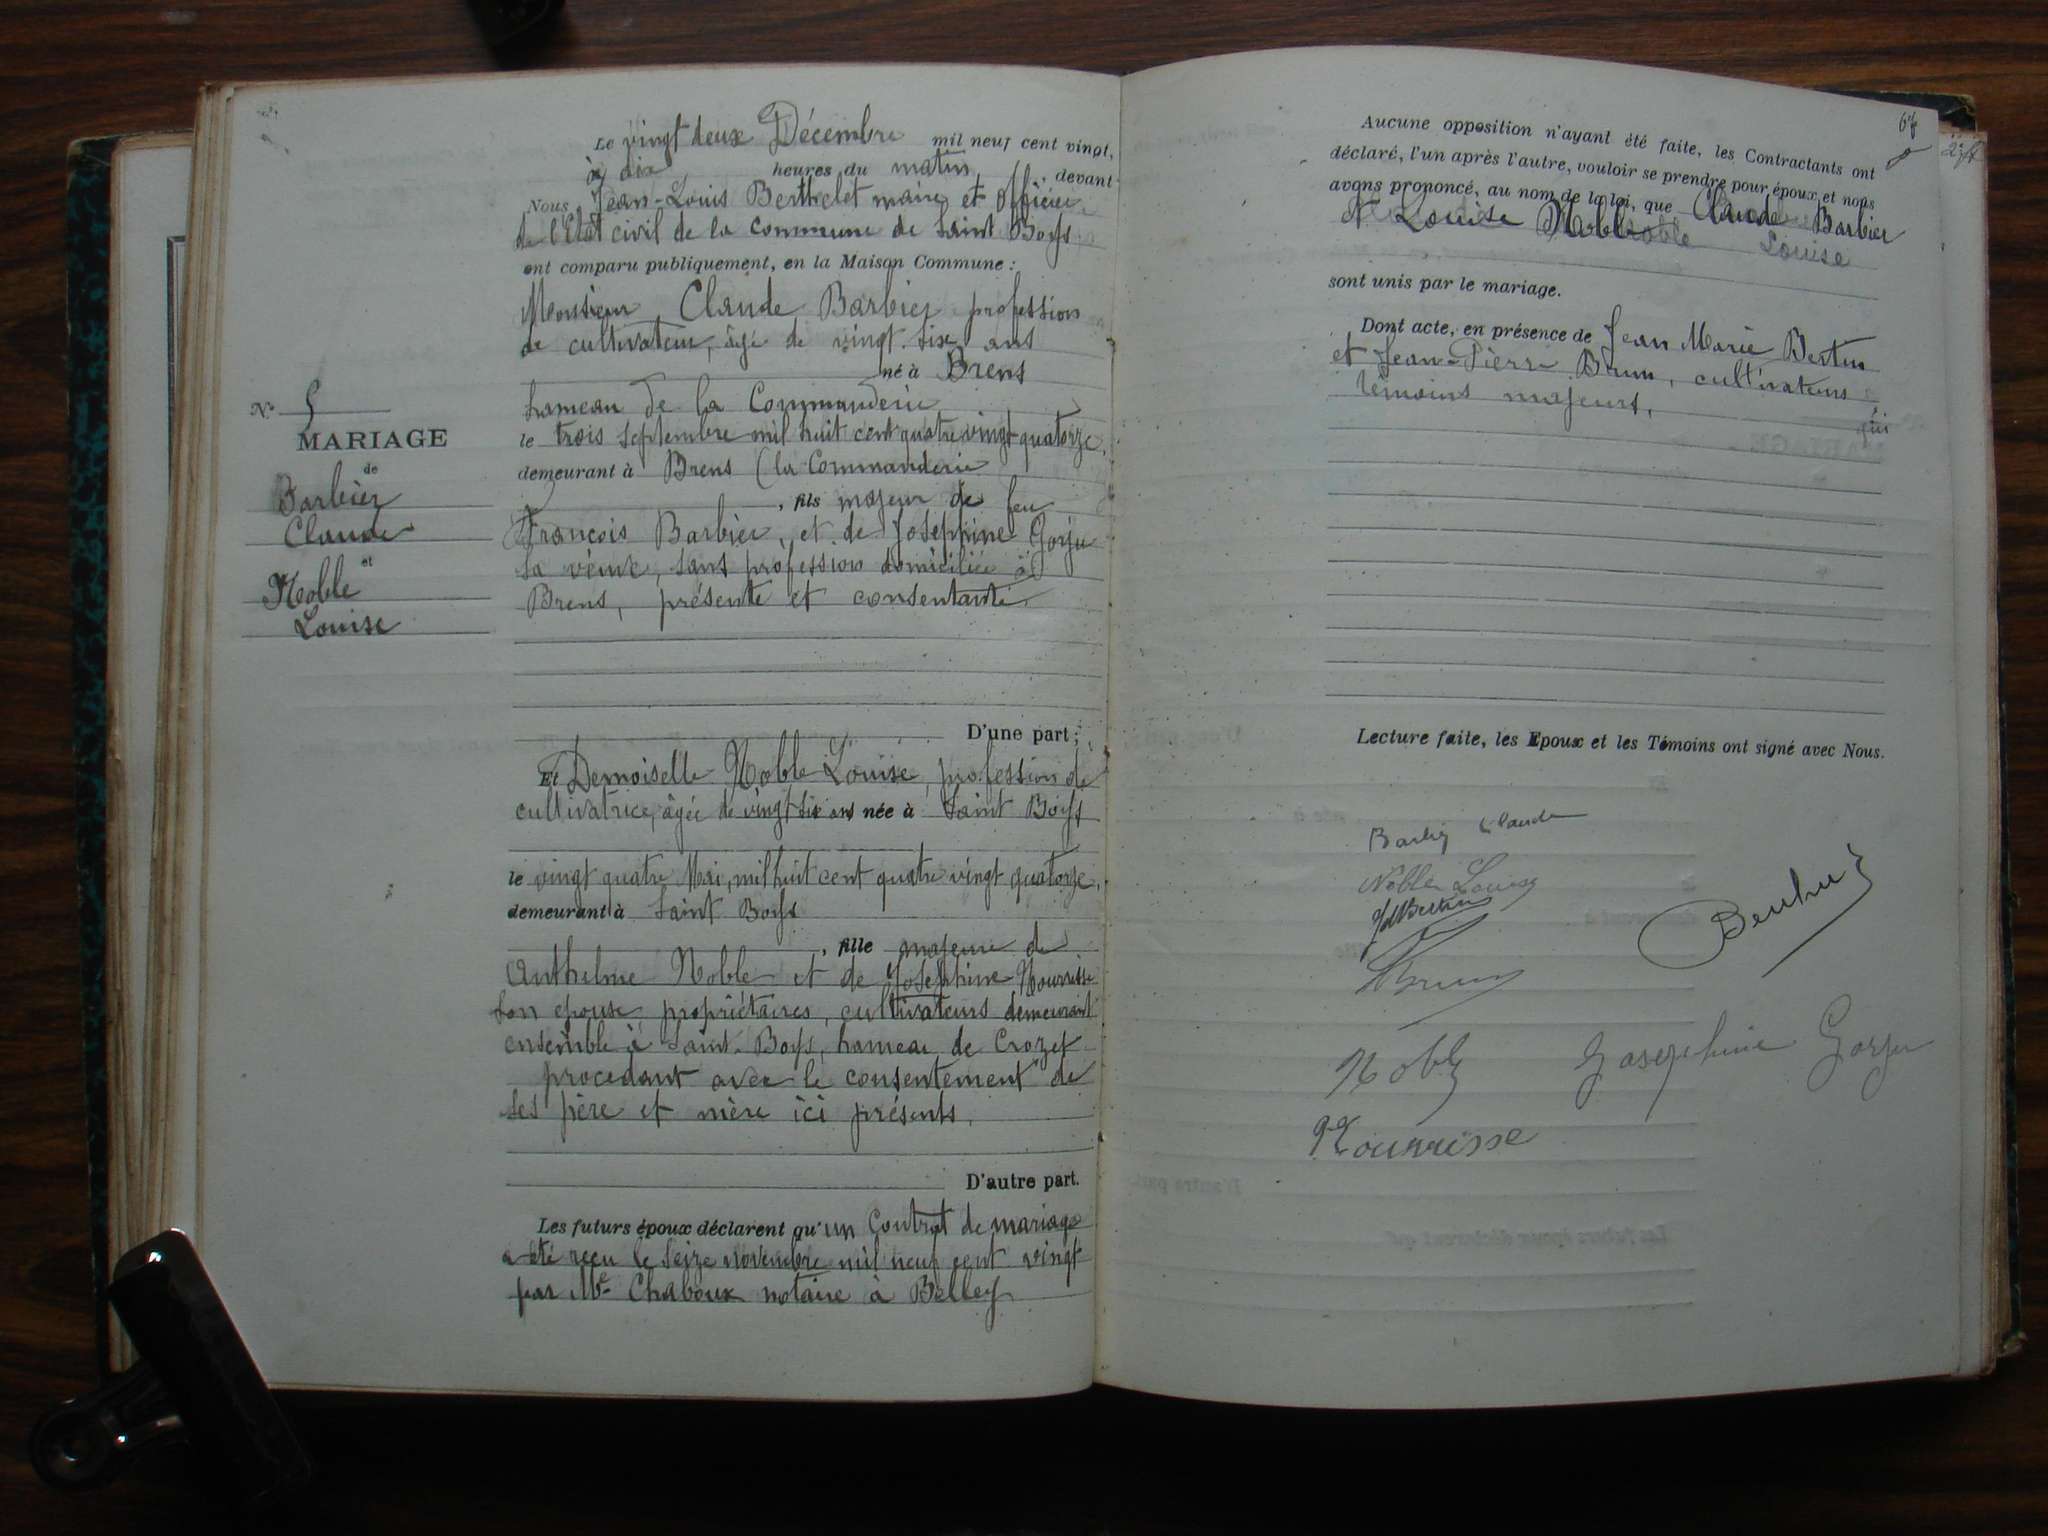 Le vingt deux Décembre mil neuf cent vingt,
à dix heures du matin, devant
Nous, Jean-Louis Berthelet maire et officier
de l'Etat civil de la commune de Saint Boys
ont comparu publiquement, en la Maison Commune :
Monsieur Claude Barbier profession
de cultivateur, âgé de vingt six ans
né à Brens
hameau de la Commanderie
le trois septembre mil huit cent quatre vingt quatorze,
demeurant à Brens (la Commanderie
, fils majeur de feu
François Barbier, et de Joséphine Gorju
sa veuve, sans profession domiciliée à
Brens, présente et consentante
D'une part ;
Et Demoiselle Noble Louise, profession de
cultivatrice, âgée de vingt six ans née à Saint Boys
le vingt quatre Mai, mil huit cent quatre vingt quatorze,
demeurant à Saint Boys
, fille majeure de
Anthelme Noble et de Joséphine Nourrisse
son epouse propriétaires, cultivateurs demeurant
ensemble à Saint-Boys, hameau de Crozet
procedant avec le consentement de
ses père et mère ici présents.
D'autre part.
Les futurs époux déclarent qu'un Contrat de mariage
a été reçu le seize novembre mil neuf cent vingt
par Me Chaboux notaire à Belley
N° 5
MARIAGE
de
Barbier
Claude
et
Noble
Louise
Aucune opposition n'ayant été faite, les Contractants ont
déclaré, l'un après l'autre, vouloir se prendre pour époux et nous
avons prononcé, au nom de la loi, que Claude Barbier
et Louise Noble
Louise
sont unis par le mariage.
Dont acte, en présence de Jean Marie Bertin
et Jean-Pierre Brun, cultivateurs
témoins majeurs,
qui
Lecture faite, les Epoux et les Témoins ont signé avec Nous.
Barbier Claude
Noble Louise
JM Bertin
Brun
Noble
Joséphine Gorju
Nourrisse